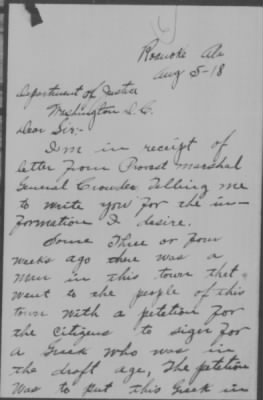 Roanoke Ala
Aug 5-18
Department of Justice
Washington D.C.
Dear Sir:-
I'm in receipt of
letter from Provost Marshal
General Crowder telling me
to write you for the in-
formation I desire.
Some Three or four
weeks ago there was a
man in this town that
went to the people of this
town with a petetion for
the citizens to sign for
a Greek who was in
the draft age, The petetion
was to put this Greek in